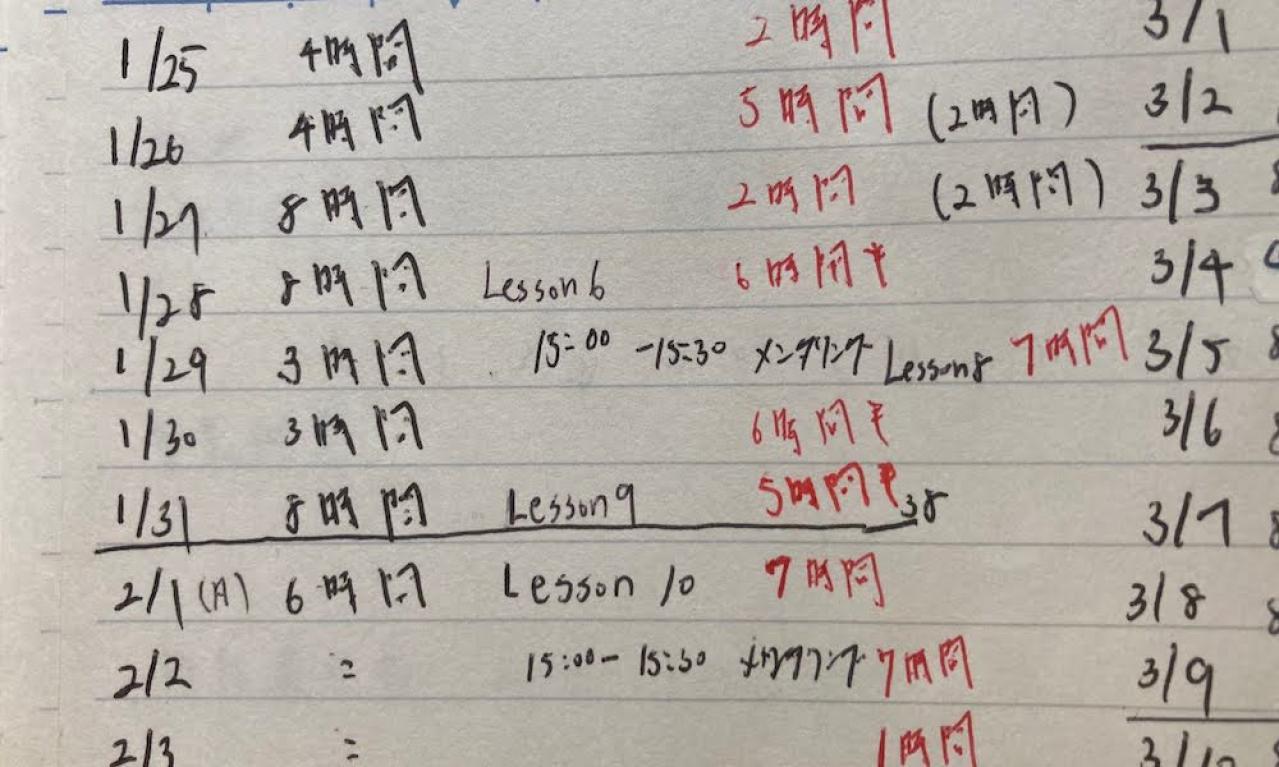 1/25 4時間 2時間 3/1
1/26 4時間 5時間 (2時間) 3/2
1/27 8時間 2時間 (2時間) 3/3
1/28 8時間 Lesson6 6時間半 3/4
1/29 3時間 15:00 -15:30 メンタリング Lesson8 7時間 3/5
1/30 3時間 6時間半 3/6
1/31 8時間 Lesson9 5時間半 38 3/7
2/1(月) 6時間 Lesson 10 7時間 3/8
2/2 = 15:00- 15:30 メンタリング 7時間 3/9
2/3 = 1時間 3/10